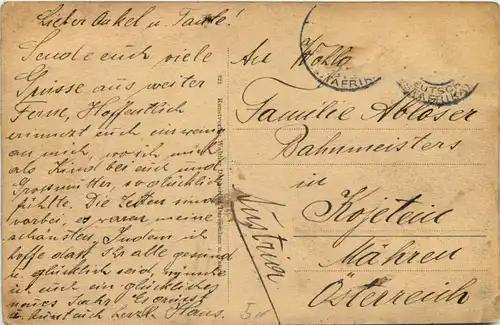 Lieber Onkel u. Tante!
Sende euch viele
Grüsse aus weiter
Ferne, Hoffentlich
erinnert euch ein wenig
an mich, wo ich mich
als Kind bei euch und
Grossmutter, so glücklich
fühlte. Die Zeiten sind
vorbei, es waren meine
schönsten. Indem ich
hoffe daß Ihr alle gesund
u. glücklich seid, wünsche
ich euch ein glückliches
neues Jahr. Es grüsst
u. küsst euch herzl. Hans.
621
An Wohlg
Familie
Bahnmeisters
in
Kojetein
Mähren
Österreich
Austria
DEUTSCH